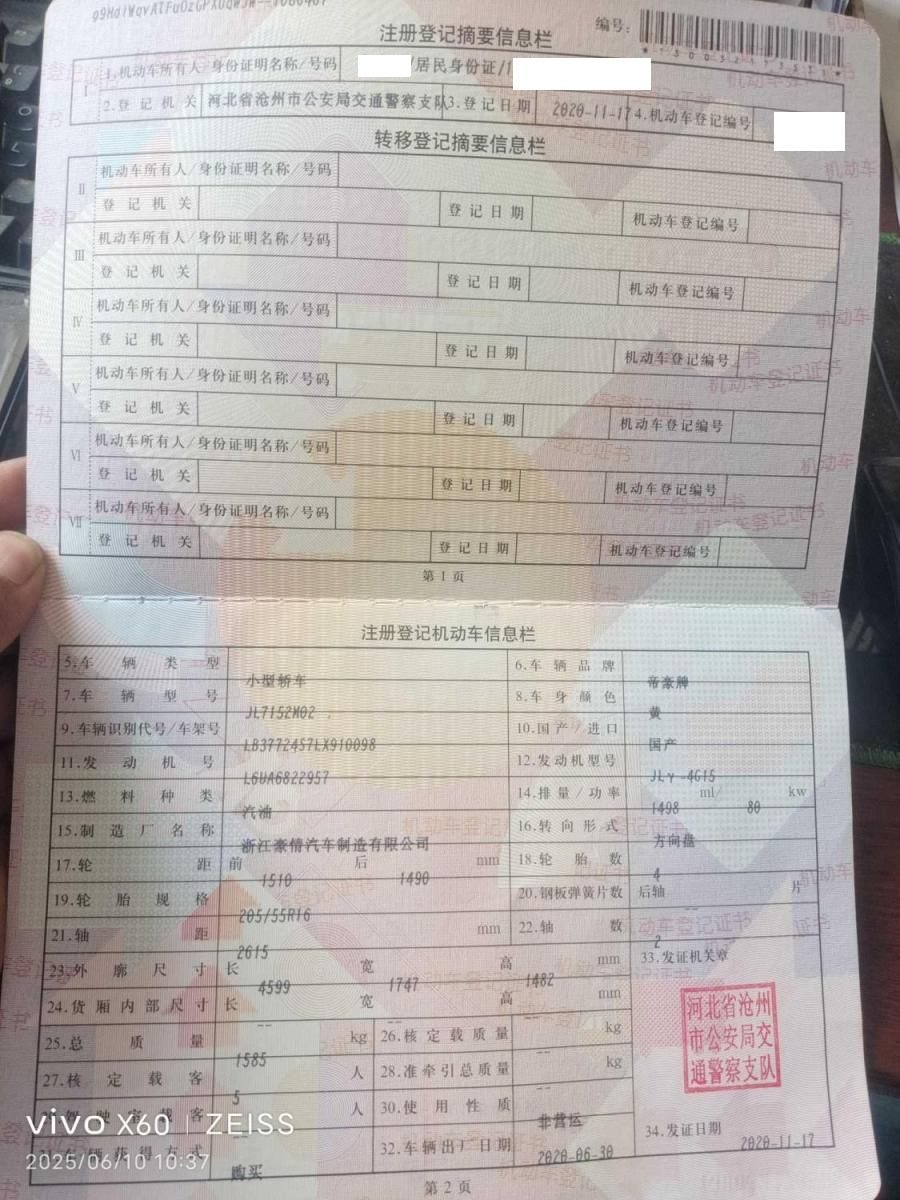 编号:
注册登记摘要信息栏
I 1.机动车所有人/身份证明名称/号码 /居民身份证/
2.登记机关 河北省沧州市公安局交通警察支队 3.登记日期 2020-11-17 4.机动车登记编号
转移登记摘要信息栏
II 机动车所有人/身份证明名称/号码
登记机关 登记日期 机动车登记编号
III 机动车所有人/身份证明名称/号码
登记机关 登记日期 机动车登记编号
IV 机动车所有人/身份证明名称/号码
登记机关 登记日期 机动车登记编号
V 机动车所有人/身份证明名称/号码
登记机关 登记日期 机动车登记编号
VI 机动车所有人/身份证明名称/号码
登记机关 登记日期 机动车登记编号
VII 机动车所有人/身份证明名称/号码
登记机关 登记日期 机动车登记编号
第 1 页
注册登记机动车信息栏
5.车辆类型 小型轿车 6.车辆品牌 帝豪牌
7.车辆型号 JL7152M02 8.车身颜色 黄
9.车辆识别代号/车架号 LB37724S7LX910098 10.国产/进口 国产
11.发动机号 L6UA6822957 12.发动机型号 JLγ-4G15
13.燃料种类 汽油 14.排量/功率 1498 ml/ 80 kw
15.制造厂名称 浙江豪情汽车制造有限公司 16.转向形式 方向盘
17.轮距 前 1510 后 1490 mm 18.轮胎数 4
19.轮胎规格 205/55R16 20.钢板弹簧片数 后轴 -- 片
21.轴距 2615 mm 22.轴数 2
23.外廓尺寸 长 4599 宽 1747 高 1482 mm 33.发证机关章
24.货厢内部尺寸 长 -- 宽 -- 高 -- mm
河北省沧州
市公安局交
通警察支队
25.总质量 1585 kg 26.核定载质量 -- kg
27.核定载客 5 人 28.准牵引总质量 -- kg
驾驶室载客 -- 人 30.使用性质 非营运
车辆获得方式 购买 32.车辆出厂日期 2020-06-30 34.发证日期 2020-11-17
第 2 页
vivo X60 | ZEISS
2025/06/10 10:37